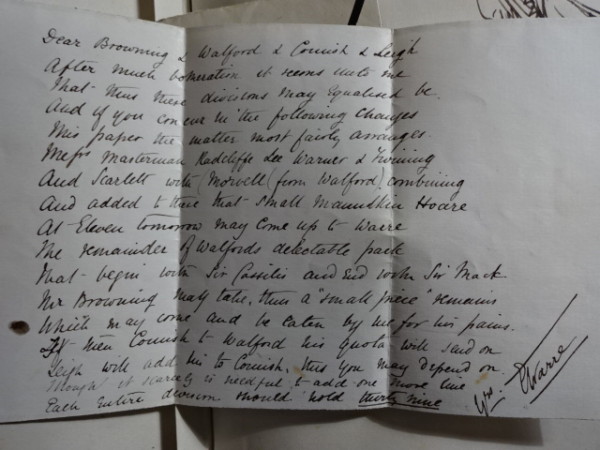 Dear Browning & Walford & Cornish & Leigh
After much botheration it seems unto me
That thus these divisions may Equalised be.
And if you concur in the following changes
This paper the matter most fairly arranges.
Messrs Masterman Radcliffe Lee Warner & Twining
And Scarlett with (Morrell (from Walford) combining
And added to these that small Mannikin Hoare
At Eleven tomorrow may come up to Warre
The remainder of Walfords delectable pack
That begin with Sir Cassilis and End with Sir Mack
Mr Browning may take, then a "small piece" remains
Which may come and be Eaten by me for his pains.
If then Cornish to Walford his quota will send on
Leigh will add his to Cornish, this you may depend on
Though it scarcely is needful to add one more line
Each Entire division should hold thirty nine
Yrs. E Warre